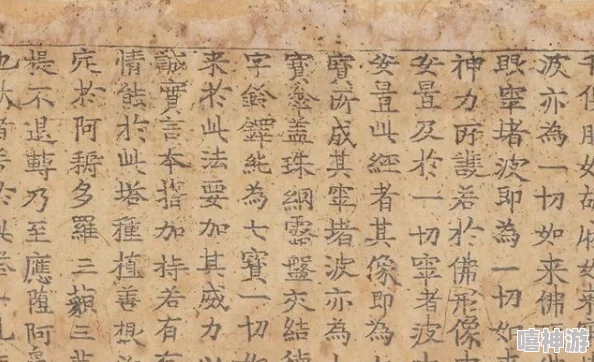 波亦為一切如来佛
眼窣堵波即為一切如
神力所護若於佛形像中
安置及於一切窣者波
安置此經者其像即為
寶所成其窣堵波亦為
寶傘蓋珠網露盤交結德
字鈴鐸純為七寶一切如
来於此法要加其威力以
誠實言本誓加持若有有
情能於此塔種植善根必
定於阿耨多羅三藐三菩
提不退轉乃至應墮阿鼻
嘻神游